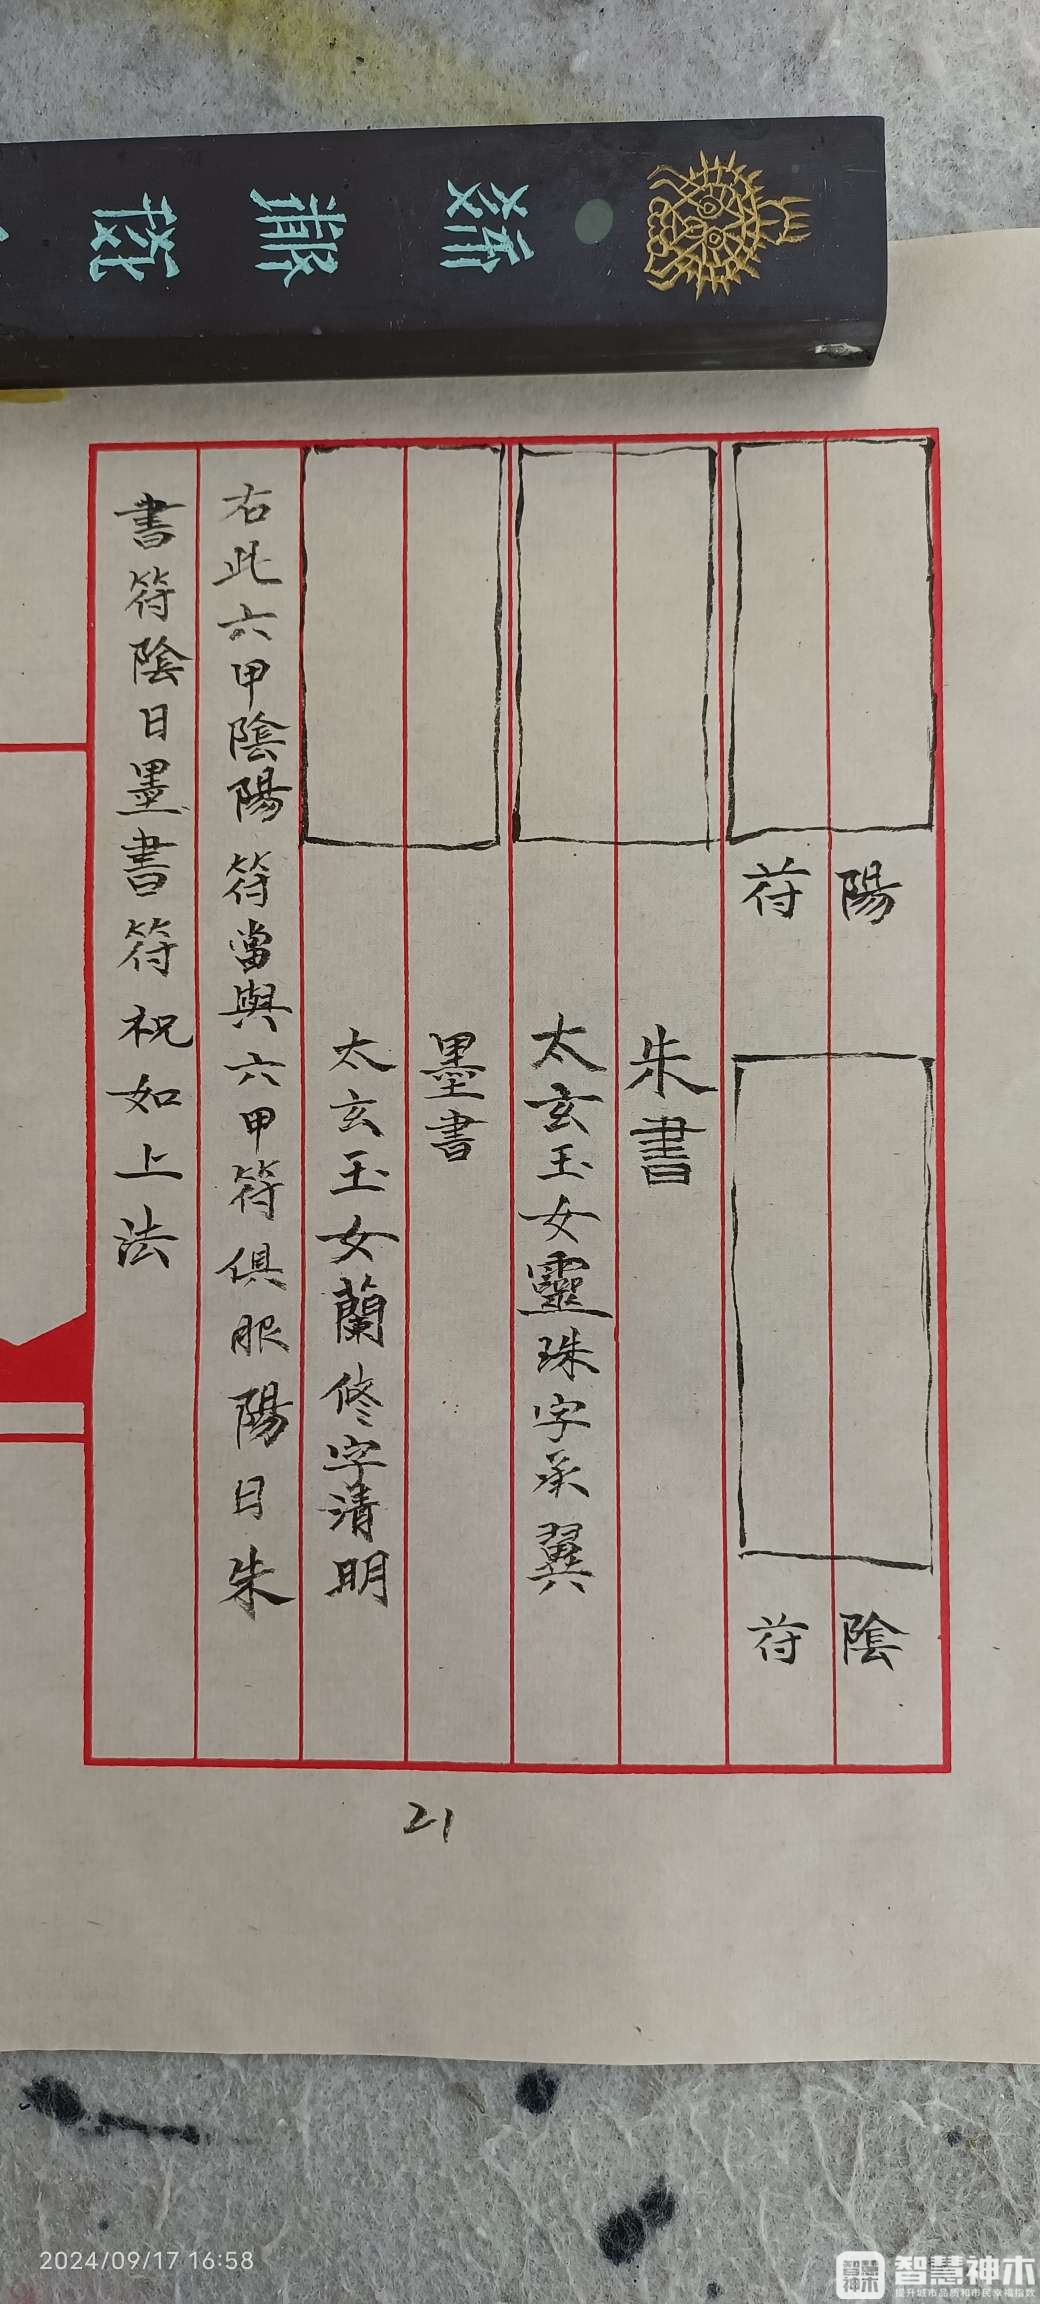 陽
符
陰
符
朱書
太玄玉女靈珠字承翼
墨書
太玄玉女蘭修字清明
右此六甲陰陽符當與六甲符俱服陽日朱
書符陰日墨書符祝如上法
21
2024/09/17 16:58
智慧神木
智慧神木
提升城市品质和市民幸福指数